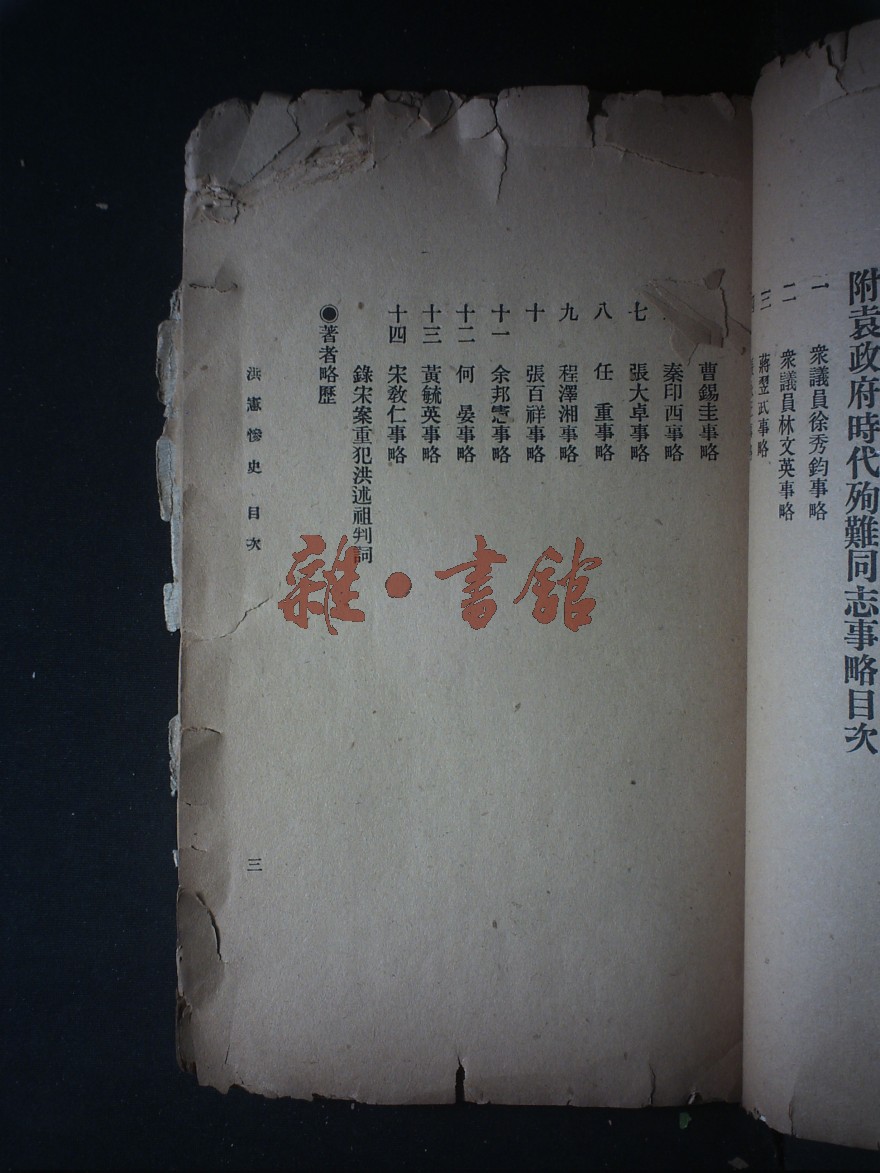 附袁政府時代殉難同志事略目次
一　衆議員徐秀鈞事略
二　衆議員林文英事略
三　蔣翌武事略
曹錫圭事略
秦印西事略
七　張大卓事略
八　任　重事略
九　程澤湘事略
十　張百祥事略
十一　余邦憲事略
十二　何　晏事略
十三　黃毓英事略
十四　宋敎仁事略
錄宋案重犯洪述祖判詞
●著者略歷
洪憲慘史　目次
三
雜·書館